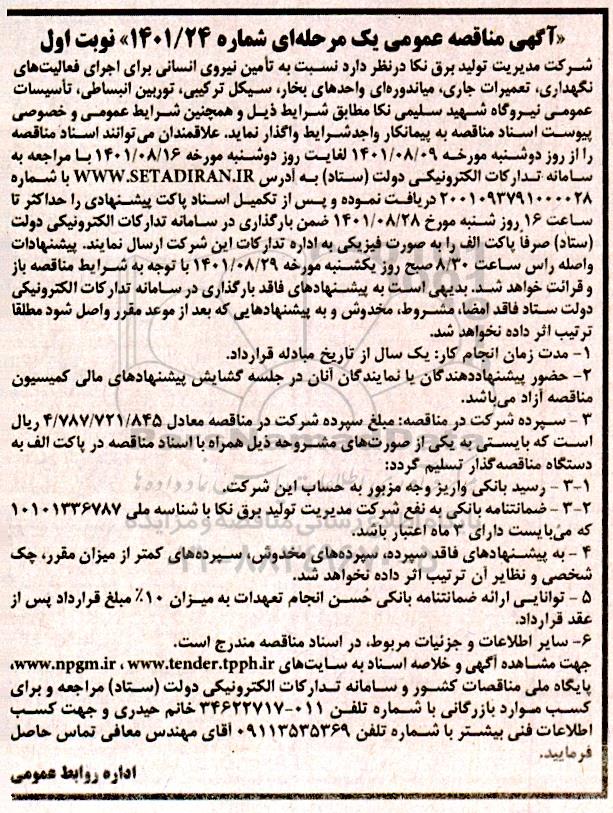 «آگهی مناقصه عمومی یک مرحله‌ای شماره ۱۴۰۱/۲۴» نوبت اول
شرکت مدیریت تولید برق نکا درنظر دارد نسبت به تأمین نیروی انسانی برای اجرای فعالیت‌های
نگهداری، تعمیرات جاری، میاندوره‌ای واحدهای بخار، سیکل ترکیبی، توربین انبساطی، تأسیسات
عمومی نیروگاه شهید سلیمی نکا مطابق شرایط ذیل و همچنین شرایط عمومی و خصوصی
پیوست اسناد مناقصه به پیمانکار واجدشرایط واگذار نماید. علاقمندان می‌توانند اسناد مناقصه
را از روز دوشنبه مورخه ۱۴۰۱/۰۸/۰۹ لغایت روز دوشنبه مورخه ۱۴۰۱/۰۸/۱۶ با مراجعه به
سامانه تدارکات الکترونیکی دولت (ستاد) به آدرس WWW.SETADIRAN.IR با شماره
۲۰۰۱۰۹۳۷۹۱۰۰۰۰۲۸ دریافت نموده و پس از تکمیل اسناد پاکت پیشنهادی را حداکثر تا
ساعت ۱۶ روز شنبه مورخ ۱۴۰۱/۰۸/۲۸ ضمن بارگذاری در سامانه تدارکات الکترونیکی دولت
(ستاد) صرفاً پاکت الف را به صورت فیزیکی به اداره تدارکات این شرکت ارسال نمایند. پیشنهادات
واصله راس ساعت ۸/۳۰ صبح روز یکشنبه مورخه ۱۴۰۱/۰۸/۲۹ با توجه به شرایط مناقصه باز
و قرائت خواهد شد. بدیهی است به پیشنهادهای فاقد بارگذاری در سامانه تدارکات الکترونیکی
دولت ستاد فاقد امضا، مشروط، مخدوش و به پیشنهادهایی که بعد از موعد مقرر واصل شود مطلقا
ترتیب اثر داده نخواهد شد.
۱- مدت زمان انجام کار: یک سال از تاریخ مبادله قرارداد.
۲- حضور پیشنهاددهندگان یا نمایندگان آنان در جلسه گشایش پیشنهادهای مالی کمیسیون
مناقصه آزاد می‌باشد.
۳ - سپرده شرکت در مناقصه: مبلغ سپرده شرکت در مناقصه معادل ۴/۷۸۷/۷۲۱/۸۴۵ ریال
است که بایستی به یکی از صورت‌های مشروحه ذیل همراه با اسناد مناقصه در پاکت الف به
دستگاه مناقصه‌گذار تسلیم گردد:
۳-۱ - رسید بانکی واریز وجه مزبور به حساب این شرکت.
۳-۲ - ضمانتنامه بانکی به نفع شرکت مدیریت تولید برق نکا با شناسه ملی ۱۰۱۰۱۳۳۶۷۸۷
که می‌بایست دارای ۳ ماه اعتبار باشد.
۴ - به پیشنهادهای فاقد سپرده، سپرده‌های مخدوش، سپرده‌های کمتر از میزان مقرر، چک
شخصی و نظایر آن ترتیب اثر داده نخواهد شد.
۵ - توانایی ارائه ضمانتنامه بانکی حُسن انجام تعهدات به میزان ۱۰٪ مبلغ قرارداد پس از
عقد قرارداد.
۶- سایر اطلاعات و جزئیات مربوط، در اسناد مناقصه مندرج است.
جهت مشاهده آگهی و خلاصه اسناد به سایت‌های www.npgm.ir ، www.tender.tpph.ir،
پایگاه ملی مناقصات کشور و سامانه تدارکات الکترونیکی دولت (ستاد) مراجعه و برای
کسب موارد بازرگانی با شماره تلفن ۰۱۱-۳۴۶۲۲۷۱۷ خانم حیدری و جهت کسب
اطلاعات فنی بیشتر با شماره تلفن ۰۹۱۱۳۵۳۵۳۶۹ آقای مهندس معافی تماس حاصل
فرمایید.
اداره روابط عمومی